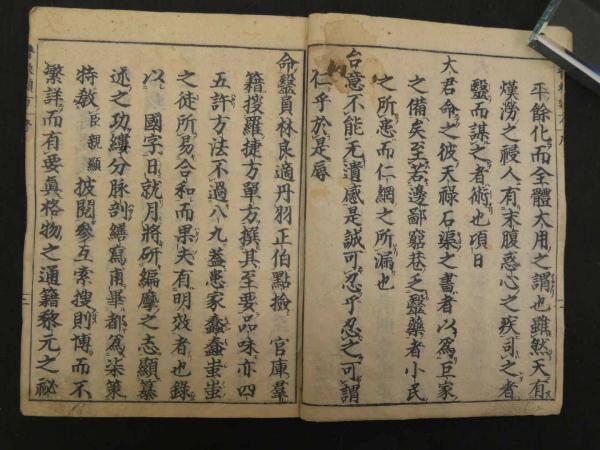 平餘化而全體大用之謂也雖然天有
熯澇之祲人有末腹惑心之疾司之者
毉而謀之者術也項日
太君命之彼天祿石渠之書者以爲巨家
之備矣至若邊鄙窮巷乏毉藥者小民
之所患而仁網之所漏也
台意不能无遺感是誠可忍乎忍之可謂
仁乎於是辱
命毉員林良適丹羽正伯點檢 官庫羣
籍搜羅捷方單方撰其至要品味亦四
五許方法不過八九葢患家蠢蠢蚩蚩
之徒所易合和而果夫有明效者也錄
以 國字日就月將硏編摩之志顯纂
述之功纔分脉剖繕寫甫畢都爲柒策
特敎臣親顯披閱參互索搜則博而不
繁詳而有要眞格物之通籍黎元之祕